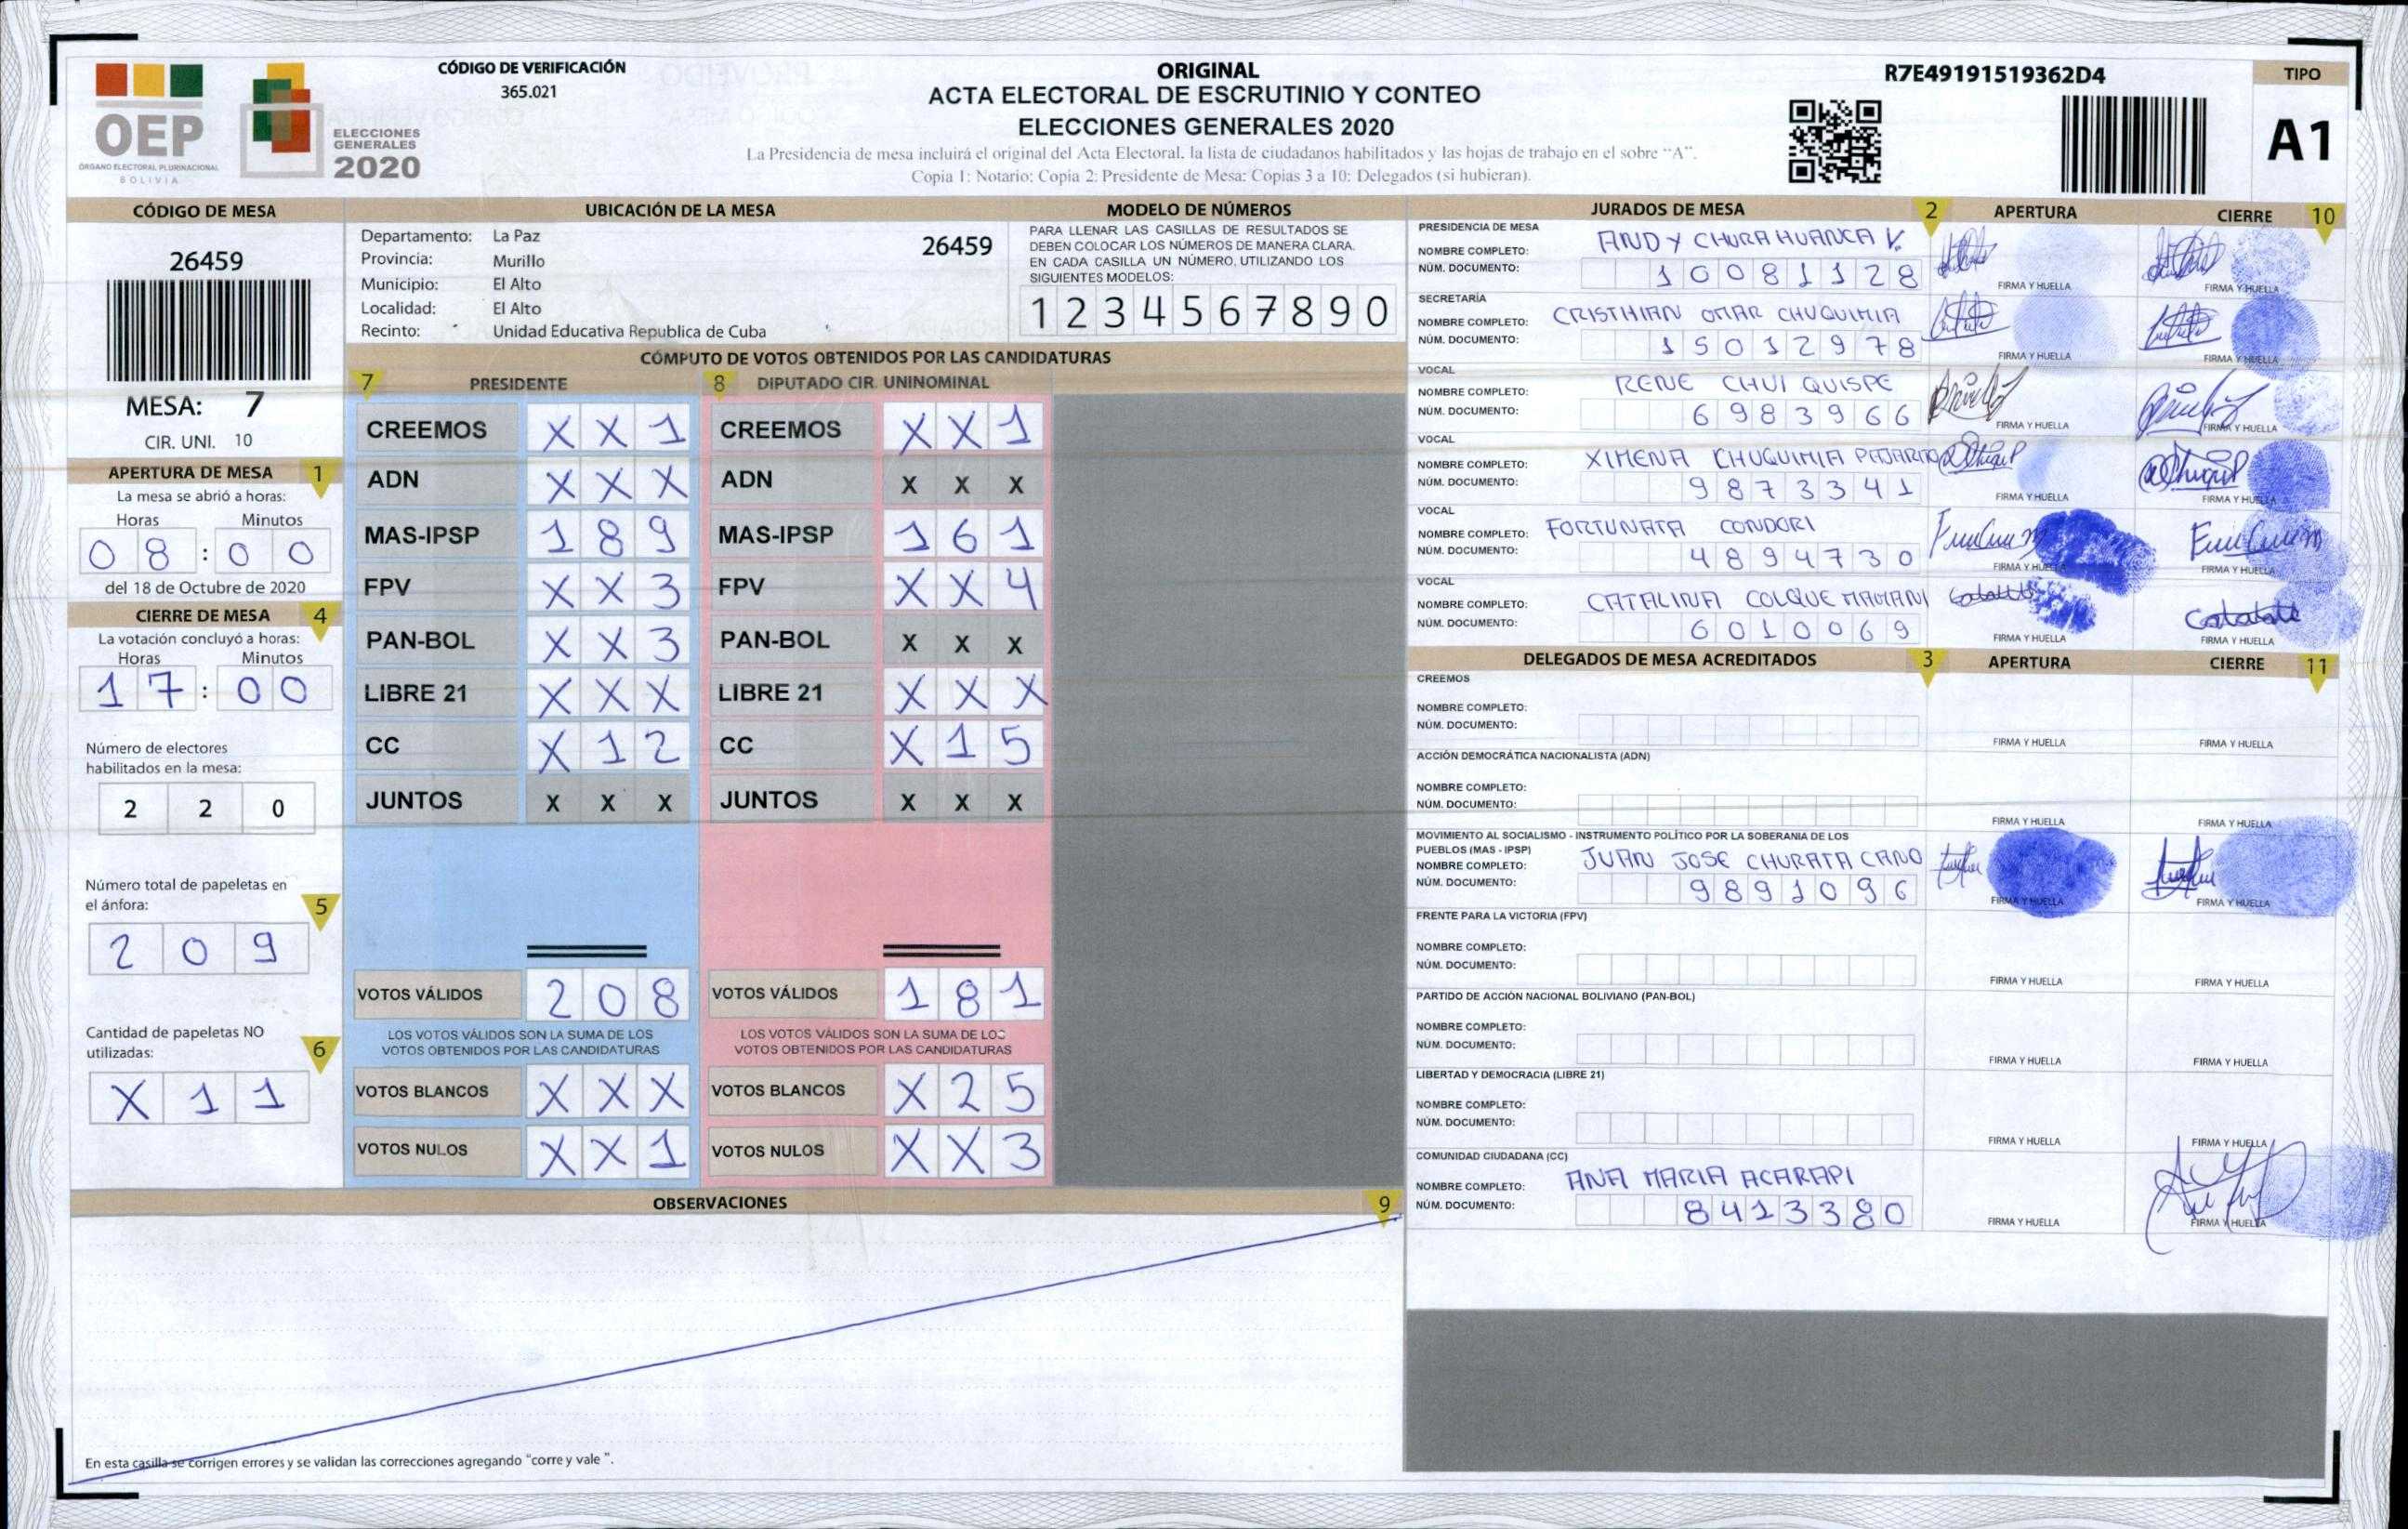 OEP
ÓRGANO ELECTORAL PLURINACIONAL
BOLIVIA
ELECCIONES
GENERALES
2020
CÓDIGO DE VERIFICACIÓN
365.021
ORIGINAL
ACTA ELECTORAL DE ESCRUTINIO Y CONTEO
ELECCIONES GENERALES 2020
La Presidencia de mesa incluirá el original del Acta Electoral, la lista de ciudadanos habilitados y las hojas de trabajo en el sobre "A".
Copia 1: Notario; Copia 2: Presidente de Mesa; Copias 3 a 10: Delegados (si hubieran).
R7E49191519362D4
TIPO
A1
CÓDIGO DE MESA
26459
MESA: 7
CIR. UNI. 10
APERTURA DE MESA 1
La mesa se abrió a horas:
Horas Minutos
0 8 : 0 0
del 18 de Octubre de 2020
CIERRE DE MESA 4
La votación concluyó a horas:
Horas Minutos
1 7 : 0 0
Número de electores
habilitados en la mesa:
2 2 0
Número total de papeletas en
el ánfora: 5
2 0 9
Cantidad de papeletas NO
utilizadas: 6
X 1 1
UBICACIÓN DE LA MESA
Departamento: La Paz 26459
Provincia: Murillo
Municipio: El Alto
Localidad: El Alto
Recinto: Unidad Educativa Republica de Cuba
MODELO DE NÚMEROS
PARA LLENAR LAS CASILLAS DE RESULTADOS SE
DEBEN COLOCAR LOS NÚMEROS DE MANERA CLARA.
EN CADA CASILLA UN NÚMERO, UTILIZANDO LOS
SIGUIENTES MODELOS:
1 2 3 4 5 6 7 8 9 0
CÓMPUTO DE VOTOS OBTENIDOS POR LAS CANDIDATURAS
7 PRESIDENTE 8 DIPUTADO CIR. UNINOMINAL
CREEMOS X X 1 CREEMOS X X 1
ADN X X X ADN X X X
MAS-IPSP 1 8 9 MAS-IPSP 1 6 1
FPV X X 3 FPV X X 4
PAN-BOL X X 3 PAN-BOL X X X
LIBRE 21 X X X LIBRE 21 X X X
CC X 1 2 CC X 1 5
JUNTOS X X X JUNTOS X X X
VOTOS VÁLIDOS 2 0 8 VOTOS VÁLIDOS 1 8 1
LOS VOTOS VÁLIDOS SON LA SUMA DE LOS LOS VOTOS VÁLIDOS SON LA SUMA DE LOS
VOTOS OBTENIDOS POR LAS CANDIDATURAS VOTOS OBTENIDOS POR LAS CANDIDATURAS
VOTOS BLANCOS X X X VOTOS BLANCOS X 2 5
VOTOS NULOS X X 1 VOTOS NULOS X X 3
OBSERVACIONES 9
En esta casilla se corrigen errores y se validan las correcciones agregando "corre y vale ".
JURADOS DE MESA 2 APERTURA CIERRE 10
PRESIDENCIA DE MESA
NOMBRE COMPLETO: ANDY CHURA HUANCA V.
NÚM. DOCUMENTO: 1 0 0 8 1 1 2 8 FIRMA Y HUELLA FIRMA Y HUELLA
SECRETARÍA
NOMBRE COMPLETO: CRISTHIAN OMAR CHUQUIMIA
NÚM. DOCUMENTO: 1 5 0 1 2 9 7 8 FIRMA Y HUELLA FIRMA Y HUELLA
VOCAL
NOMBRE COMPLETO: RENE CHUI QUISPE
NÚM. DOCUMENTO: 6 9 8 3 9 6 6 FIRMA Y HUELLA FIRMA Y HUELLA
VOCAL
NOMBRE COMPLETO: XIMENA CHUQUIMIA
NÚM. DOCUMENTO: 9 8 7 3 3 4 1 FIRMA Y HUELLA FIRMA Y HUELLA
VOCAL
NOMBRE COMPLETO: FORTUNATA CONDORI
NÚM. DOCUMENTO: 4 8 9 4 7 3 0 FIRMA Y HUELLA FIRMA Y HUELLA
VOCAL
NOMBRE COMPLETO: CATALINA COLQUE MAMANI
NÚM. DOCUMENTO: 6 0 1 0 0 6 9 FIRMA Y HUELLA FIRMA Y HUELLA
DELEGADOS DE MESA ACREDITADOS 3 APERTURA CIERRE 11
CREEMOS
NOMBRE COMPLETO:
NÚM. DOCUMENTO: FIRMA Y HUELLA FIRMA Y HUELLA
ACCIÓN DEMOCRÁTICA NACIONALISTA (ADN)
NOMBRE COMPLETO:
NÚM. DOCUMENTO: FIRMA Y HUELLA FIRMA Y HUELLA
MOVIMIENTO AL SOCIALISMO - INSTRUMENTO POLÍTICO POR LA SOBERANIA DE LOS
PUEBLOS (MAS - IPSP)
NOMBRE COMPLETO: JUAN JOSE CHURATA CANO
NÚM. DOCUMENTO: 9 8 9 1 0 9 6 FIRMA Y HUELLA FIRMA Y HUELLA
FRENTE PARA LA VICTORIA (FPV)
NOMBRE COMPLETO:
NÚM. DOCUMENTO: FIRMA Y HUELLA FIRMA Y HUELLA
PARTIDO DE ACCIÓN NACIONAL BOLIVIANO (PAN-BOL)
NOMBRE COMPLETO:
NÚM. DOCUMENTO: FIRMA Y HUELLA FIRMA Y HUELLA
LIBERTAD Y DEMOCRACIA (LIBRE 21)
NOMBRE COMPLETO:
NÚM. DOCUMENTO: FIRMA Y HUELLA FIRMA Y HUELLA
COMUNIDAD CIUDADANA (CC)
NOMBRE COMPLETO: ANA MARIA ACARAPI
NÚM. DOCUMENTO: 8 4 1 3 3 8 0 FIRMA Y HUELLA FIRMA Y HUELLA